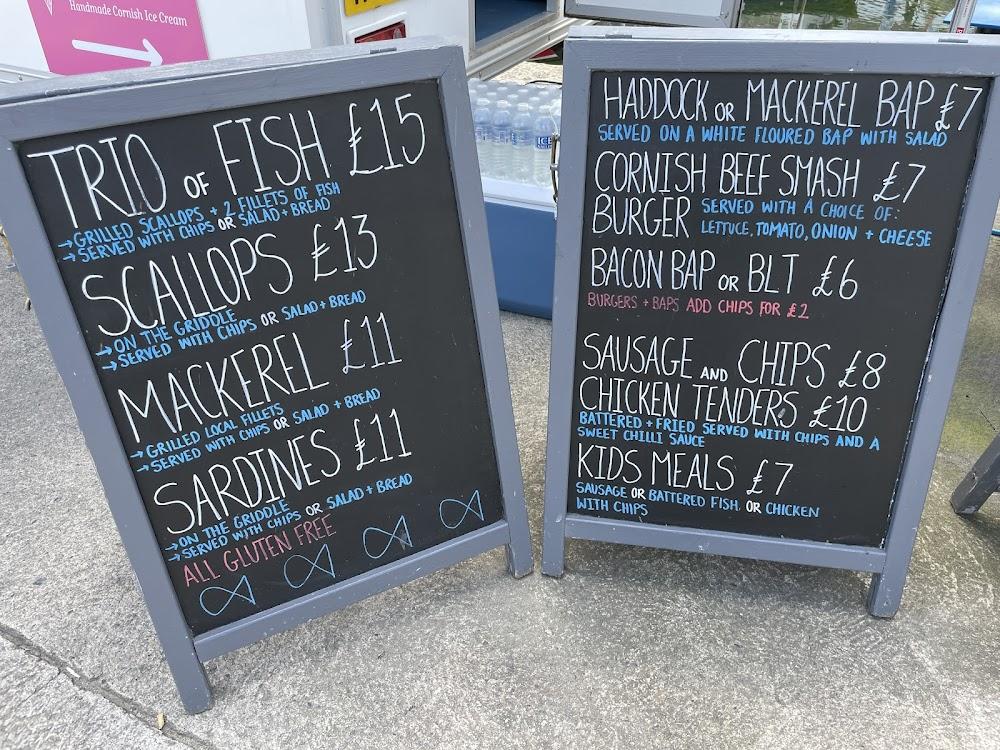 Handmade Cornish Ice Cream
TRIO OF FISH £15
→ GRILLED SCALLOPS + 2 FILLETS OF FISH
→ SERVED WITH CHIPS OR SALAD + BREAD
SCALLOPS £13
→ ON THE GRIDDLE
→ SERVED WITH CHIPS OR SALAD + BREAD
MACKEREL £11
→ GRILLED LOCAL FILLETS
→ SERVED WITH CHIPS OR SALAD + BREAD
SARDINES £11
→ ON THE GRIDDLE
→ SERVED WITH CHIPS OR SALAD + BREAD
ALL GLUTEN FREE
HADDOCK OR MACKEREL BAP £7
SERVED ON A WHITE FLOURED BAP WITH SALAD
CORNISH BEEF SMASH £7
BURGER SERVED WITH A CHOICE OF:
LETTUCE, TOMATO, ONION + CHEESE
BACON BAP OR BLT £6
BURGERS + BAPS ADD CHIPS FOR £2
SAUSAGE AND CHIPS £8
CHICKEN TENDERS £10
BATTERED + FRIED SERVED WITH CHIPS AND A
SWEET CHILLI SAUCE
KIDS MEALS £7
SAUSAGE OR BATTERED FISH OR CHICKEN
WITH CHIPS